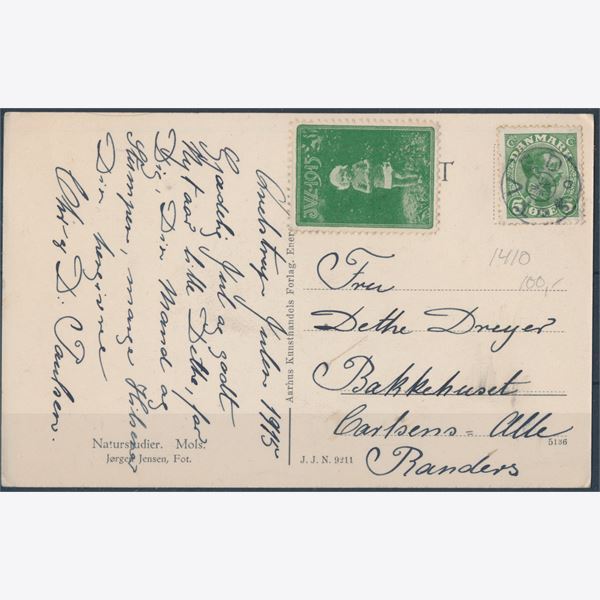 Julen 1915
Glædelig Jul og godt
Nytaar lille Dethe, for
Dig, Din Mand og
Stumpen, mange Hilsener
Din hengivne
D. Paulsen.
Naturstudier. Mols.
Jørgen Jensen, Fot.
Aarhus Kunsthandels Forlag. Ener
J. J. N. 9211
JUL 1915
T
DANMARK
5 ØRE 5
1410
100,-
Fru
Dethe Dreyer
Bakkehuset
Carlsens=Alle
Randers
5136